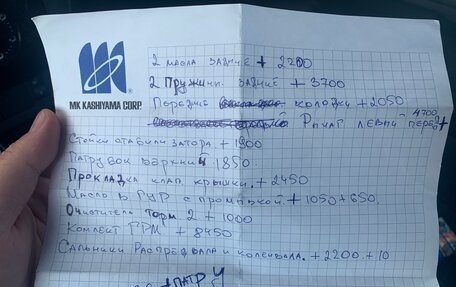 MK KASHIYAMA CORP.
2 масла задние + 2200
2 Пружины. задние + 3700
Передние колодки + 2050
Рычаг левый перед + 4700
Стойки стабилизатора. + 1900
Патрубок верхний 1850.
Прокладка клап. крышки. + 2450
Масло в ГУР с промывкой. + 1050 + 650.
Очистители торм 2 + 1000
Комплект ГРМ + 8450
Сальники Распредвала и коленвала. + 2200. + 10
+ ПАТРУ